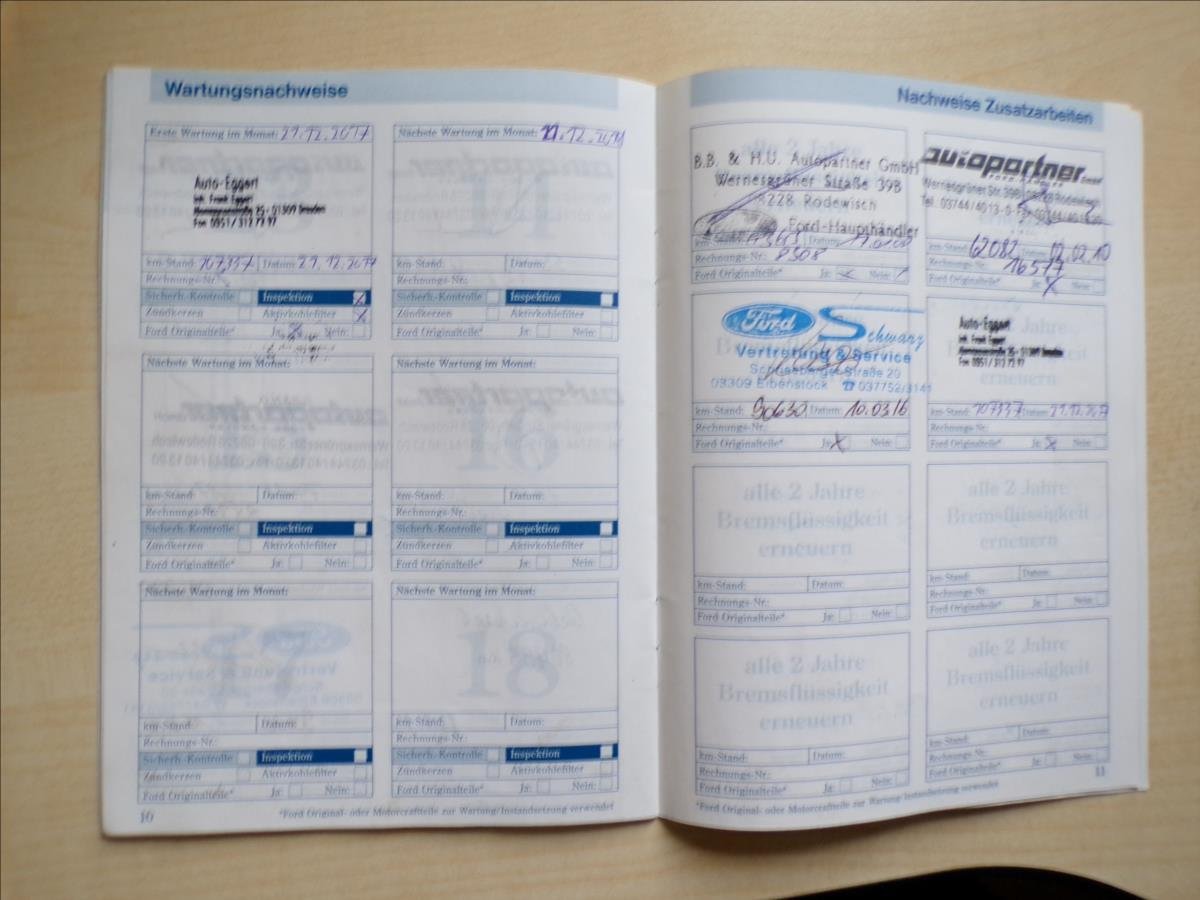 Wartungsnachweise
Erste Wartung im Monat: 21.12.2017
Auto-Eggert
Inh. Frank Eggert
25 - 01309 Dresden
Fon 0351 / 312 73 97
km-Stand: 107337 Datum: 21.12.2017
Rechnungs-Nr.:
Sicherh.-Kontrolle Inspektion X
Zündkerzen Aktivkohlefilter X
Ford Originalteile* Ja: X Nein:
Nächste Wartung im Monat:
km-Stand: Datum:
Rechnungs-Nr.:
Sicherh.-Kontrolle Inspektion
Zündkerzen Aktivkohlefilter
Ford Originalteile* Ja: Nein:
Nächste Wartung im Monat:
km-Stand: Datum:
Rechnungs-Nr.:
Sicherh.-Kontrolle Inspektion
Zündkerzen Aktivkohlefilter
Ford Originalteile* Ja: Nein:
Nächste Wartung im Monat:
16
km-Stand: Datum:
Rechnungs-Nr.:
Sicherh.-Kontrolle Inspektion
Zündkerzen Aktivkohlefilter
Ford Originalteile* Ja: Nein:
Nächste Wartung im Monat:
17
km-Stand: Datum:
Rechnungs-Nr.:
Sicherh.-Kontrolle Inspektion
Zündkerzen Aktivkohlefilter
Ford Originalteile* Ja: Nein:
Nächste Wartung im Monat:
18
km-Stand: Datum:
Rechnungs-Nr.:
Sicherh.-Kontrolle Inspektion
Zündkerzen Aktivkohlefilter
Ford Originalteile* Ja: Nein:
*Ford Original- oder Motorcraftteile zur Wartung/Instandsetzung verwendet
10
Nachweise Zusatzarbeiten
B.B. & H.U. Autopartner GmbH
Wernesgrüner Straße 39B
08228 Rodewisch
Ford-Haupthändler
km-Stand: Datum:
Rechnungs-Nr.: 8508
Ford Originalteile* Ja: Nein:
autopartner GmbH
Wernesgrüner Str. 39B 08228 Rodewisch
Tel. 03744/4013-0 Fax 03744/401320
km-Stand: 62082 Datum: 12.02.10
Rechnungs-Nr.: 16577
Ford Originalteile* Ja: X Nein:
Ford Schwarz
Vertretung & Service
Schneeberger Straße 20
09309 Eibenstock ☎ 037752/3141
km-Stand: 90630 Datum: 10.03.16
Rechnungs-Nr.:
Ford Originalteile* Ja: X Nein:
Auto-Eggert
Inh. Frank Eggert
25 - 01309 Dresden
Fon 0351 / 312 73 97
km-Stand: 107337 Datum: 21.12.2017
Rechnungs-Nr.:
Ford Originalteile* Ja: X Nein:
alle 2 Jahre
Bremsflüssigkeit
erneuern
km-Stand: Datum:
Rechnungs-Nr.:
Ford Originalteile* Ja: Nein:
alle 2 Jahre
Bremsflüssigkeit
erneuern
km-Stand: Datum:
Rechnungs-Nr.:
Ford Originalteile* Ja: Nein:
alle 2 Jahre
Bremsflüssigkeit
erneuern
km-Stand: Datum:
Rechnungs-Nr.:
Ford Originalteile* Ja: Nein:
alle 2 Jahre
Bremsflüssigkeit
erneuern
km-Stand: Datum:
Rechnungs-Nr.:
Ford Originalteile* Ja: Nein:
*Ford Original- oder Motorcraftteile zur Wartung/Instandsetzung verwendet
11